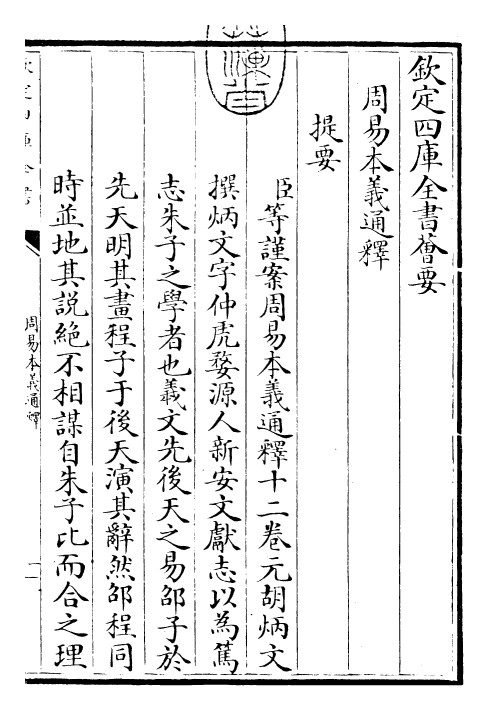 欽定四庫全書薈要
周易本義通釋
提要
臣等謹案周易本義通釋十二卷元胡炳文
撰炳文字仲虎婺源人新安文獻志以為篤
志朱子之學者也羲文先後天之易邵子於
先天明其畫程子于後天演其辭然邵程同
時並地其説絶不相謀自朱子比而合之理
周易本義通釋